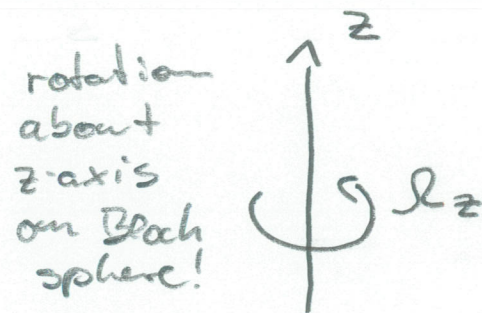 rotation
about
z-axis
on Bloch
sphere!
z
Ω_z